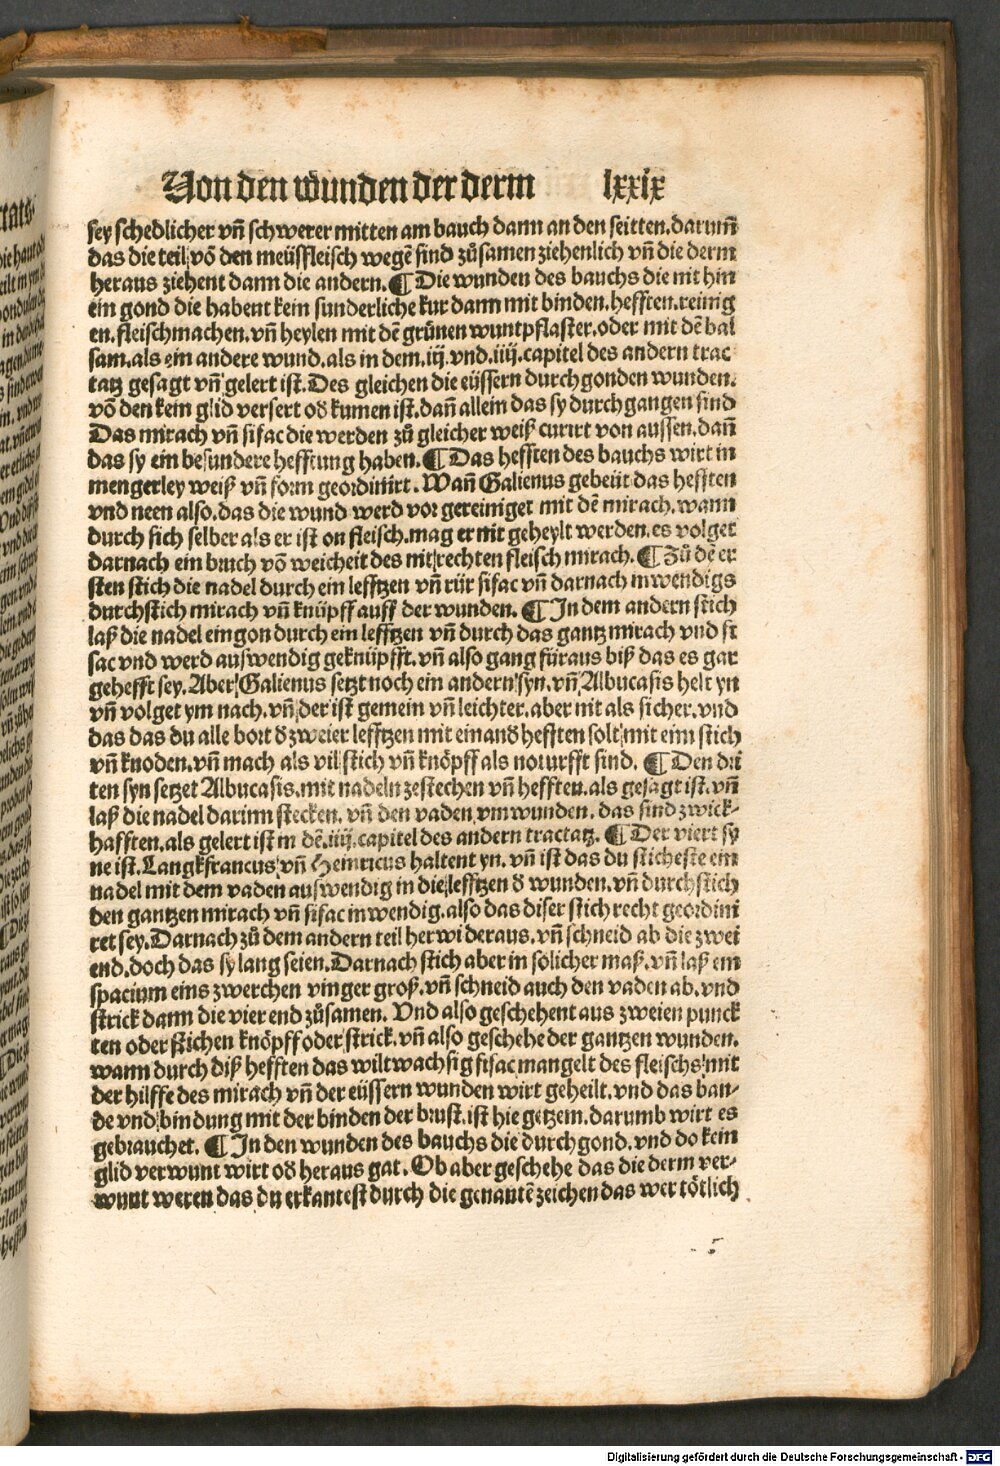 Von den wunden der derm lxxix
sey schedlicher vñ schwerer mitten am bauch dann an den seitten. darum̃
das die teil võ den meüsfleisch wegẽ sind zůsamen ziehenlich vñ die derm
heraus ziehent dann die andern. ¶ Die wunden des bauchs die nit hin
ein gond die habent kein sunderliche kur dann mit binden. hefften. reinig
en. fleischmachen. vñ heylen mit dẽ grůnen wuntpflaster. oder mit dẽ bal
sam. als ein andere wund. als in dem. iij. vnd. iiij. capitel des andern trac
tatz gesagt vñ gelert ist. Des gleichen die eüssern durchgonden wunden.
võ den kein glid versert oð kumen ist. dañ allein das sy durchgangen sind
Das mirach vñ sifac die werden zů gleicher weiß curirt von aussen. dañ
das sy ein besundere hefftung haben. ¶ Das hefften des bauchs wirt in
mengerley weiß vñ form geordiniirt. Wañ Galienus gebeüt das hefften
vnd neen also. das die wund werd vor gereiniget mit dẽ mirach. wann
durch sich selber als er ist on fleisch. mag er nit geheylt werden. es volget
darnach ein bruch võ weicheit des nit rechten fleisch mirach. ¶ Zů dẽ er
sten stich die nadel durch ein lefftzen vñ rür sifac vñ darnach inwendigs
durchstich mirach vñ knüpff auff der wunden. ¶ In dem andern stich
laß die nadel eingon durch ein lefftzen vñ durch das gantz mirach vnd si
fac vnd werd auswendig geknüpfft. vñ also gang füraus biß das es gar
gehefft sey. Aber Galienus setzt noch ein andern syn. vñ Albucasis helt yn
vñ volget ym nach. vñ der ist gemein vñ leichter. aber nit als sicher. vnd
das das du alle bort ð zweier lefftzen mit einanð hefften solt mit eim stich
vñ knoden. vñ mach als vil stich vñ knöpff als noturfft sind. ¶ Den dri
ten syn setzet Albucasis. mit nadeln zestechen vñ hefften. als gesagt ist. vñ
laß die nadel darinn stecken. vñ den vaden vmwunden. das sind zwick-
hafften. als gelert ist in dẽ. iiij. capitel des andern tractatz. ¶ Der viert sy
ne ist. Langkfrancus vñ Heinricus haltent yn. vñ ist das du sticheste ein
nadel mit dem vaden auswendig in die lefftzen ð wunden. vñ durchstich
den gantzen mirach vñ sifac inwendig. also das diser stich recht geordini
ret sey. Darnach zů dem andern teil herwideraus. vñ schneid ab die zwei
end. doch das sy lang seien. Darnach stich aber in solicher maß. vñ laß ein
spacium eins zwerchen vinger groß. vñ schneid auch den vaden ab. vnd
strick dann die vier end zůsamen. Vnd also geschehent aus zweien punck
ten oder stichen knöpff oder strick. vñ also geschehe der gantzen wunden.
wann durch diß hefften das wiltwachsig sifac mangelt des fleischs mit
der hilffe des mirach vñ der eüssern wunden wirt geheilt. vnd das ban-
de vnd bindung mit der binden der brust. ist hie getzem. darumb wirt es
gebrauchet. ¶ In den wunden des bauchs die durchgond. vnd do kein
glid verwunt wirt oð heraus gat. Ob aber geschehe das die derm ver-
wunt weren das du erkantest durch die genautẽ zeichen das wer tötlich
Digitalisierung gefördert durch die Deutsche Forschungsgemeinschaft - DFG